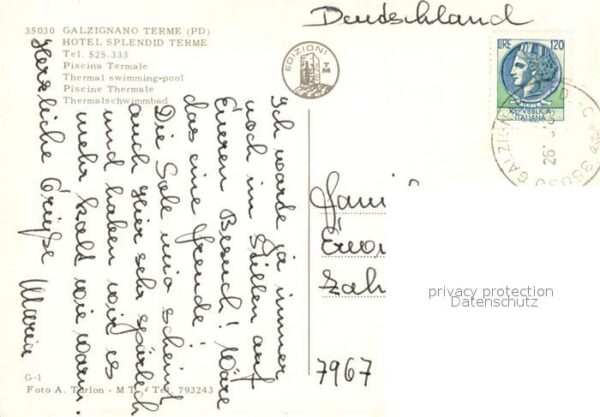 35030 GALZIGNANO TERME (PD)
HOTEL SPLENDID TERME
Tel. 525.333
Piscina Termale
Thermal swimming-pool
Piscine Thermale
Thermalschwimmbad
EDIZIONI
TM
Deutschland
LIRE 120
REPVBBLICA
ITALIANA
35030 GALZIGN
26
Ich warde ja immer
noch im Stillen auf
Eueren Besuch! Wäre
das eine Freude!
Die Sole mio scheint
auch hier sehr spärlich
und haben wir es
mehr kalt wie warm.
Herzliche Grüße Maria
Fami
Erwi
Zah
7967
privacy protection
Datenschutz
G-1
Foto A. Turlon - M.T. - Tel. 793243